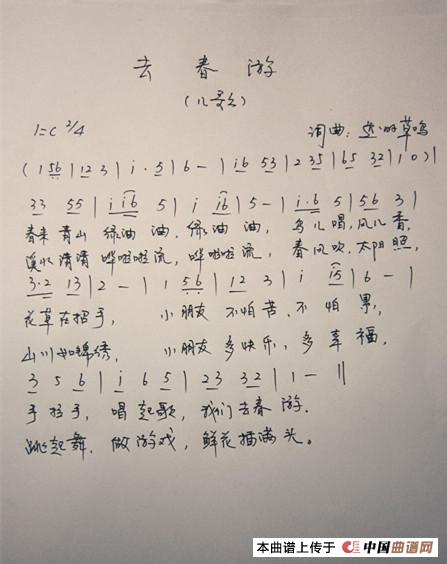 去春游
(儿歌)
1=C 2/4
词曲：草鸣
(1 56 | 12 3 | i · 5 | 6 - | i6 53 | 2 35 | 65 32 | 1 0) |
33 55 | i i6 5 | i i6 | 5 - | i·6 5 | 56 3 |
春来青山 绿油油，绿油油，鸟儿唱，风儿香，
溪水清清 哗啦啦流，哗啦啦流，春风吹，太阳照，
3·2 13 | 2 - | 1 56 | 12 3 | i i5 | 6 - |
花草在招手， 小朋友 不怕苦，不怕累，
山川如锦绣， 小朋友 多快乐，多幸福，
3 5 6 | i 6 5 | 23 32 | 1 - ‖
手拉手，唱起歌，我们去春游．
跳起舞，做游戏，鲜花插满头。
本曲谱上传于 中国曲谱网